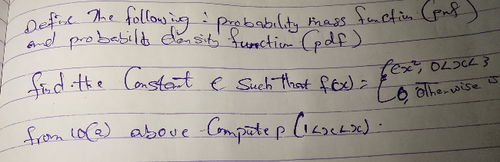 Define The following : probability mass function (pmf)
and probability density function (pdf)
find the Constant c Such That f(x) = { cx², 0<x<3
0, otherwise
from 10(a) above Compute p(1<x<x).